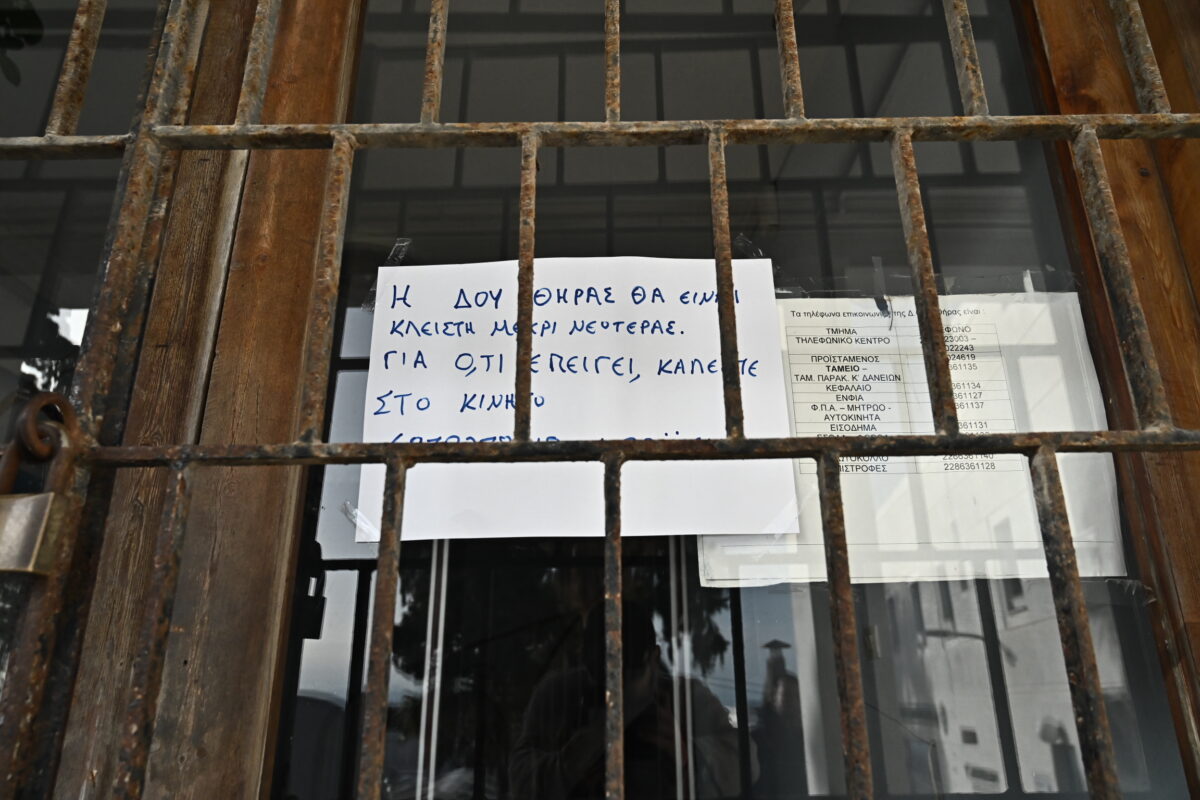 Η ΔΟΥ ΘΗΡΑΣ ΘΑ ΕΙΝΑΙ
ΚΛΕΙΣΤΗ ΜΕΧΡΙ ΔΕΥΤΕΡΑΣ.
ΓΙΑ Ο,ΤΙ ΕΠΕΙΓΕΙ, ΚΑΛΕΣΤΕ
ΣΤΟ ΚΙΝΗΤΟ
Τα τηλέφωνα επικοινωνίας της Θήρας είναι :
ΤΜΗΜΑ
ΤΗΛΕΦΩΝΙΚΟ ΚΕΝΤΡΟ 23003 –
022243
ΠΡΟΪΣΤΑΜΕΝΟΣ 024619
ΤΑΜΕΙΟ – 361135
ΤΑΜ. ΠΑΡΑΚ. Κ' ΔΑΝΕΙΩΝ
ΚΕΦΑΛΑΙΟ 361134
ΕΝΦΙΑ 361127
Φ.Π.Α. – ΜΗΤΡΩΟ - 361137
ΑΥΤΟΚΙΝΗΤΑ
ΕΙΣΟΔΗΜΑ 361131
2286361140
2286361128